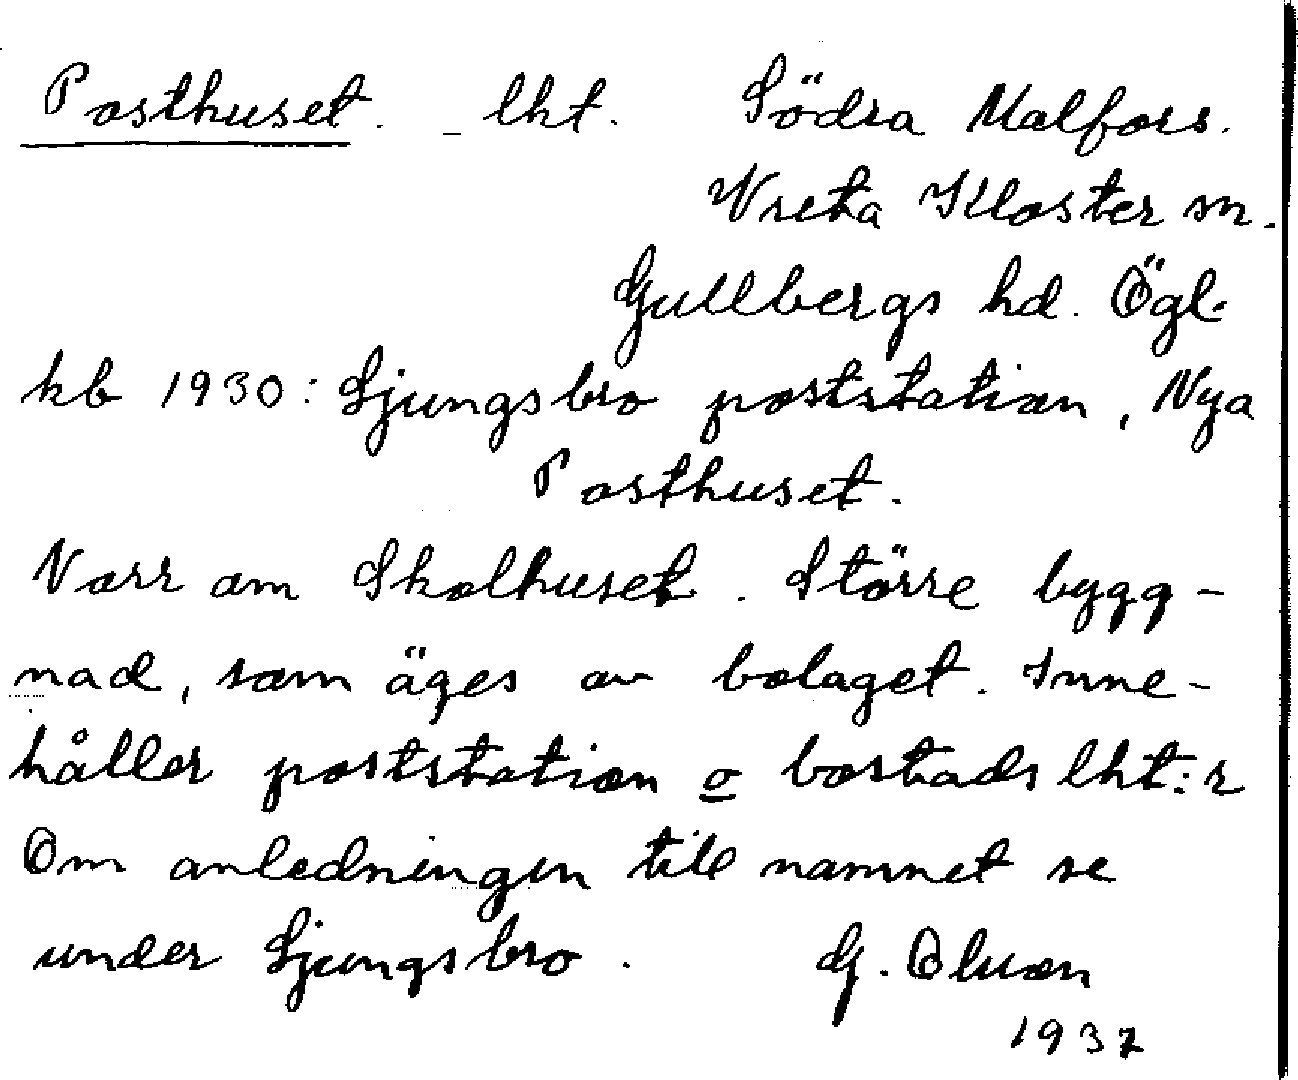 Posthuset. - lht. Södra Malfors.
Vreta Kloster sn.
Gullbergs hd. Ögl.
kb 1930: Ljungsbro poststation, Nya
Posthuset.
Norr om Skolhuset. Större bygg-
nad, som äges av bolaget. Inne-
håller poststation o bostadslht:r
Om anledningen till namnet se
under Ljungsbro. G. Olson
1937